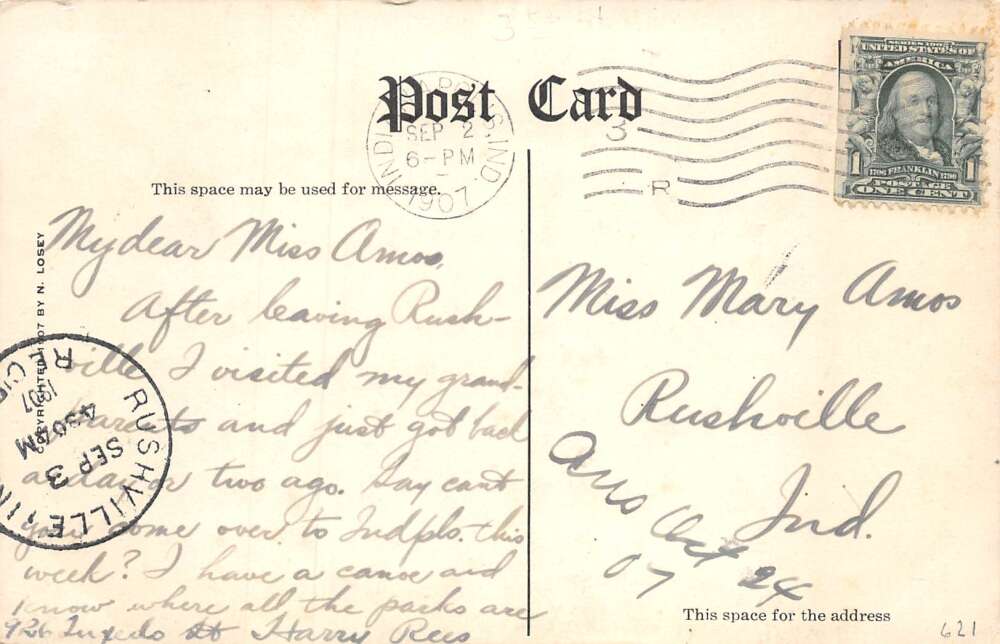 Post Card
INDIANAPOLIS, IND.
SEP 2
6-PM
1907
3
R
SERIES 1902
UNITED STATES OF
AMERICA
1706 FRANKLIN 1790
POSTAGE
1 ONE CENT 1
This space may be used for message.
COPYRIGHTED 1907 BY N. LOSEY
My dear Miss Amos,
After leaving Rush-
ville I visited my grand-
parents and just got back
a day or two ago. Say can't
you come over to Indpls. this
week? I have a canoe and
know where all the parks are
926 Tuxedo St Harry Rees
RUSHVILLE, IN
SEP 3
430AM
1907
REC'D
Miss Mary Amos
Rushville
Ind.
Ans Oct 24
07
This space for the address
621